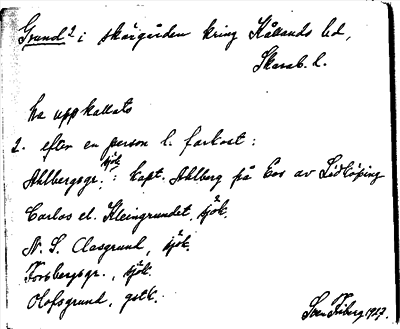 Grund² i skärgården kring Kållands ld,
Skarab. l.
ha uppkallats
2. efter en person l. farkost:
Ahlbergsgr., sjök.: Kapt. Ahlberg på Eos av Lidköping
Carlos el. Kleingrundet, sjök.
N. S. Clasgrund, sjök.
Forsbergsgr., sjök.
Olofsgrund, gstk.
Sven Friberg 1927.